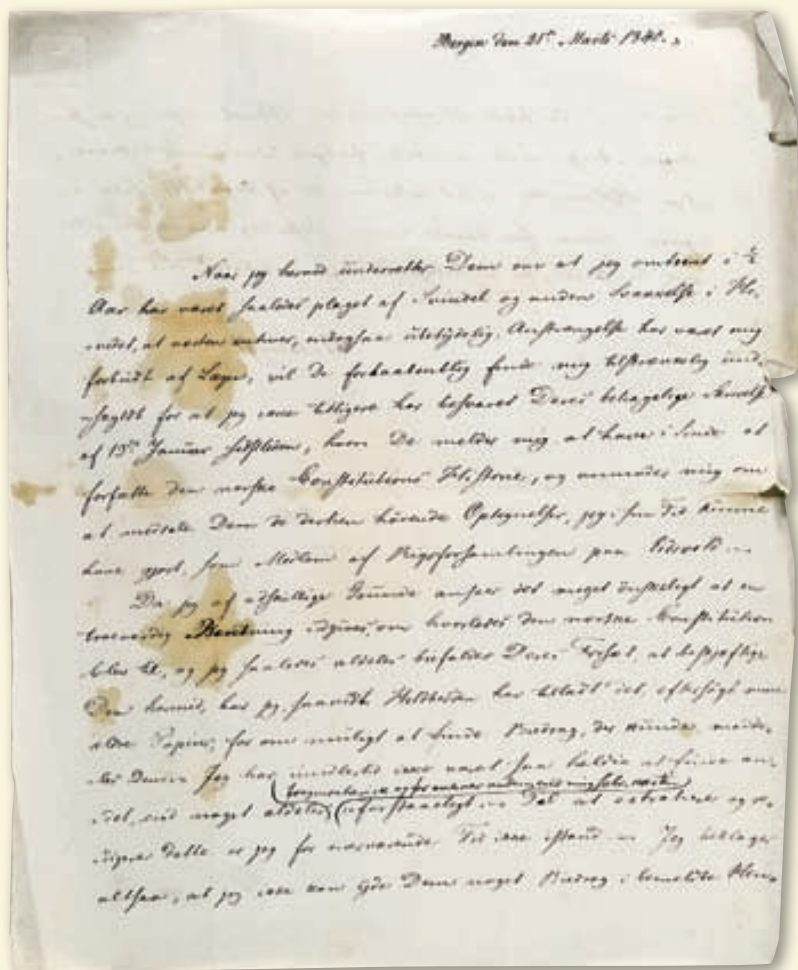 Bergen den 21de Marts 1841.
Naar jeg herved underretter Dem om at jeg omtrent i ½
Aar har været saaledes plaget af Svindel og anden Svævelse i Ho-
vedet, at næsten enhver, endogsaa ubetydelig, Anstrængelse har været mig
forbudt af Læge, vil De forhaabentlig finde mig tilstrækkelig und-
skyldt for at jeg ikke tidligere har besvaret Deres behagelige Skrivelse
af 13de Januar sidstleden, hvori De melder mig at have i Sinde at
forfatte den norske Constitutions Historie, og anmoder mig om
at meddele Dem de derhen hørende Optegnelser, jeg i sin Tid kunde
have gjort, som Medlem af Rigsforsamlingen paa Eidsvold.
Da jeg af adskillige Grunde anseer det meget ønskeligt at en
troværdig Beretning udgives om hvorledes den norske Constitution
blev til, og jeg saaledes aldeles bifalder Deres Forsæt, at beskjæftige
Dem hermed, har jeg saavidt Helbreden har tilladt det, eftersøgt mine
ældre Papirer, for om muligt at finde Bidrag, der kunde
Jeg har imidlertid ikke været saa heldig at finde an-
det, end noget aldeles
Det at extrahere og
dette er jeg for nærværende Tid ikke istand Jeg beklager
altsaa, at jeg ikke kan yde Dem noget Bidrag i bemeldte